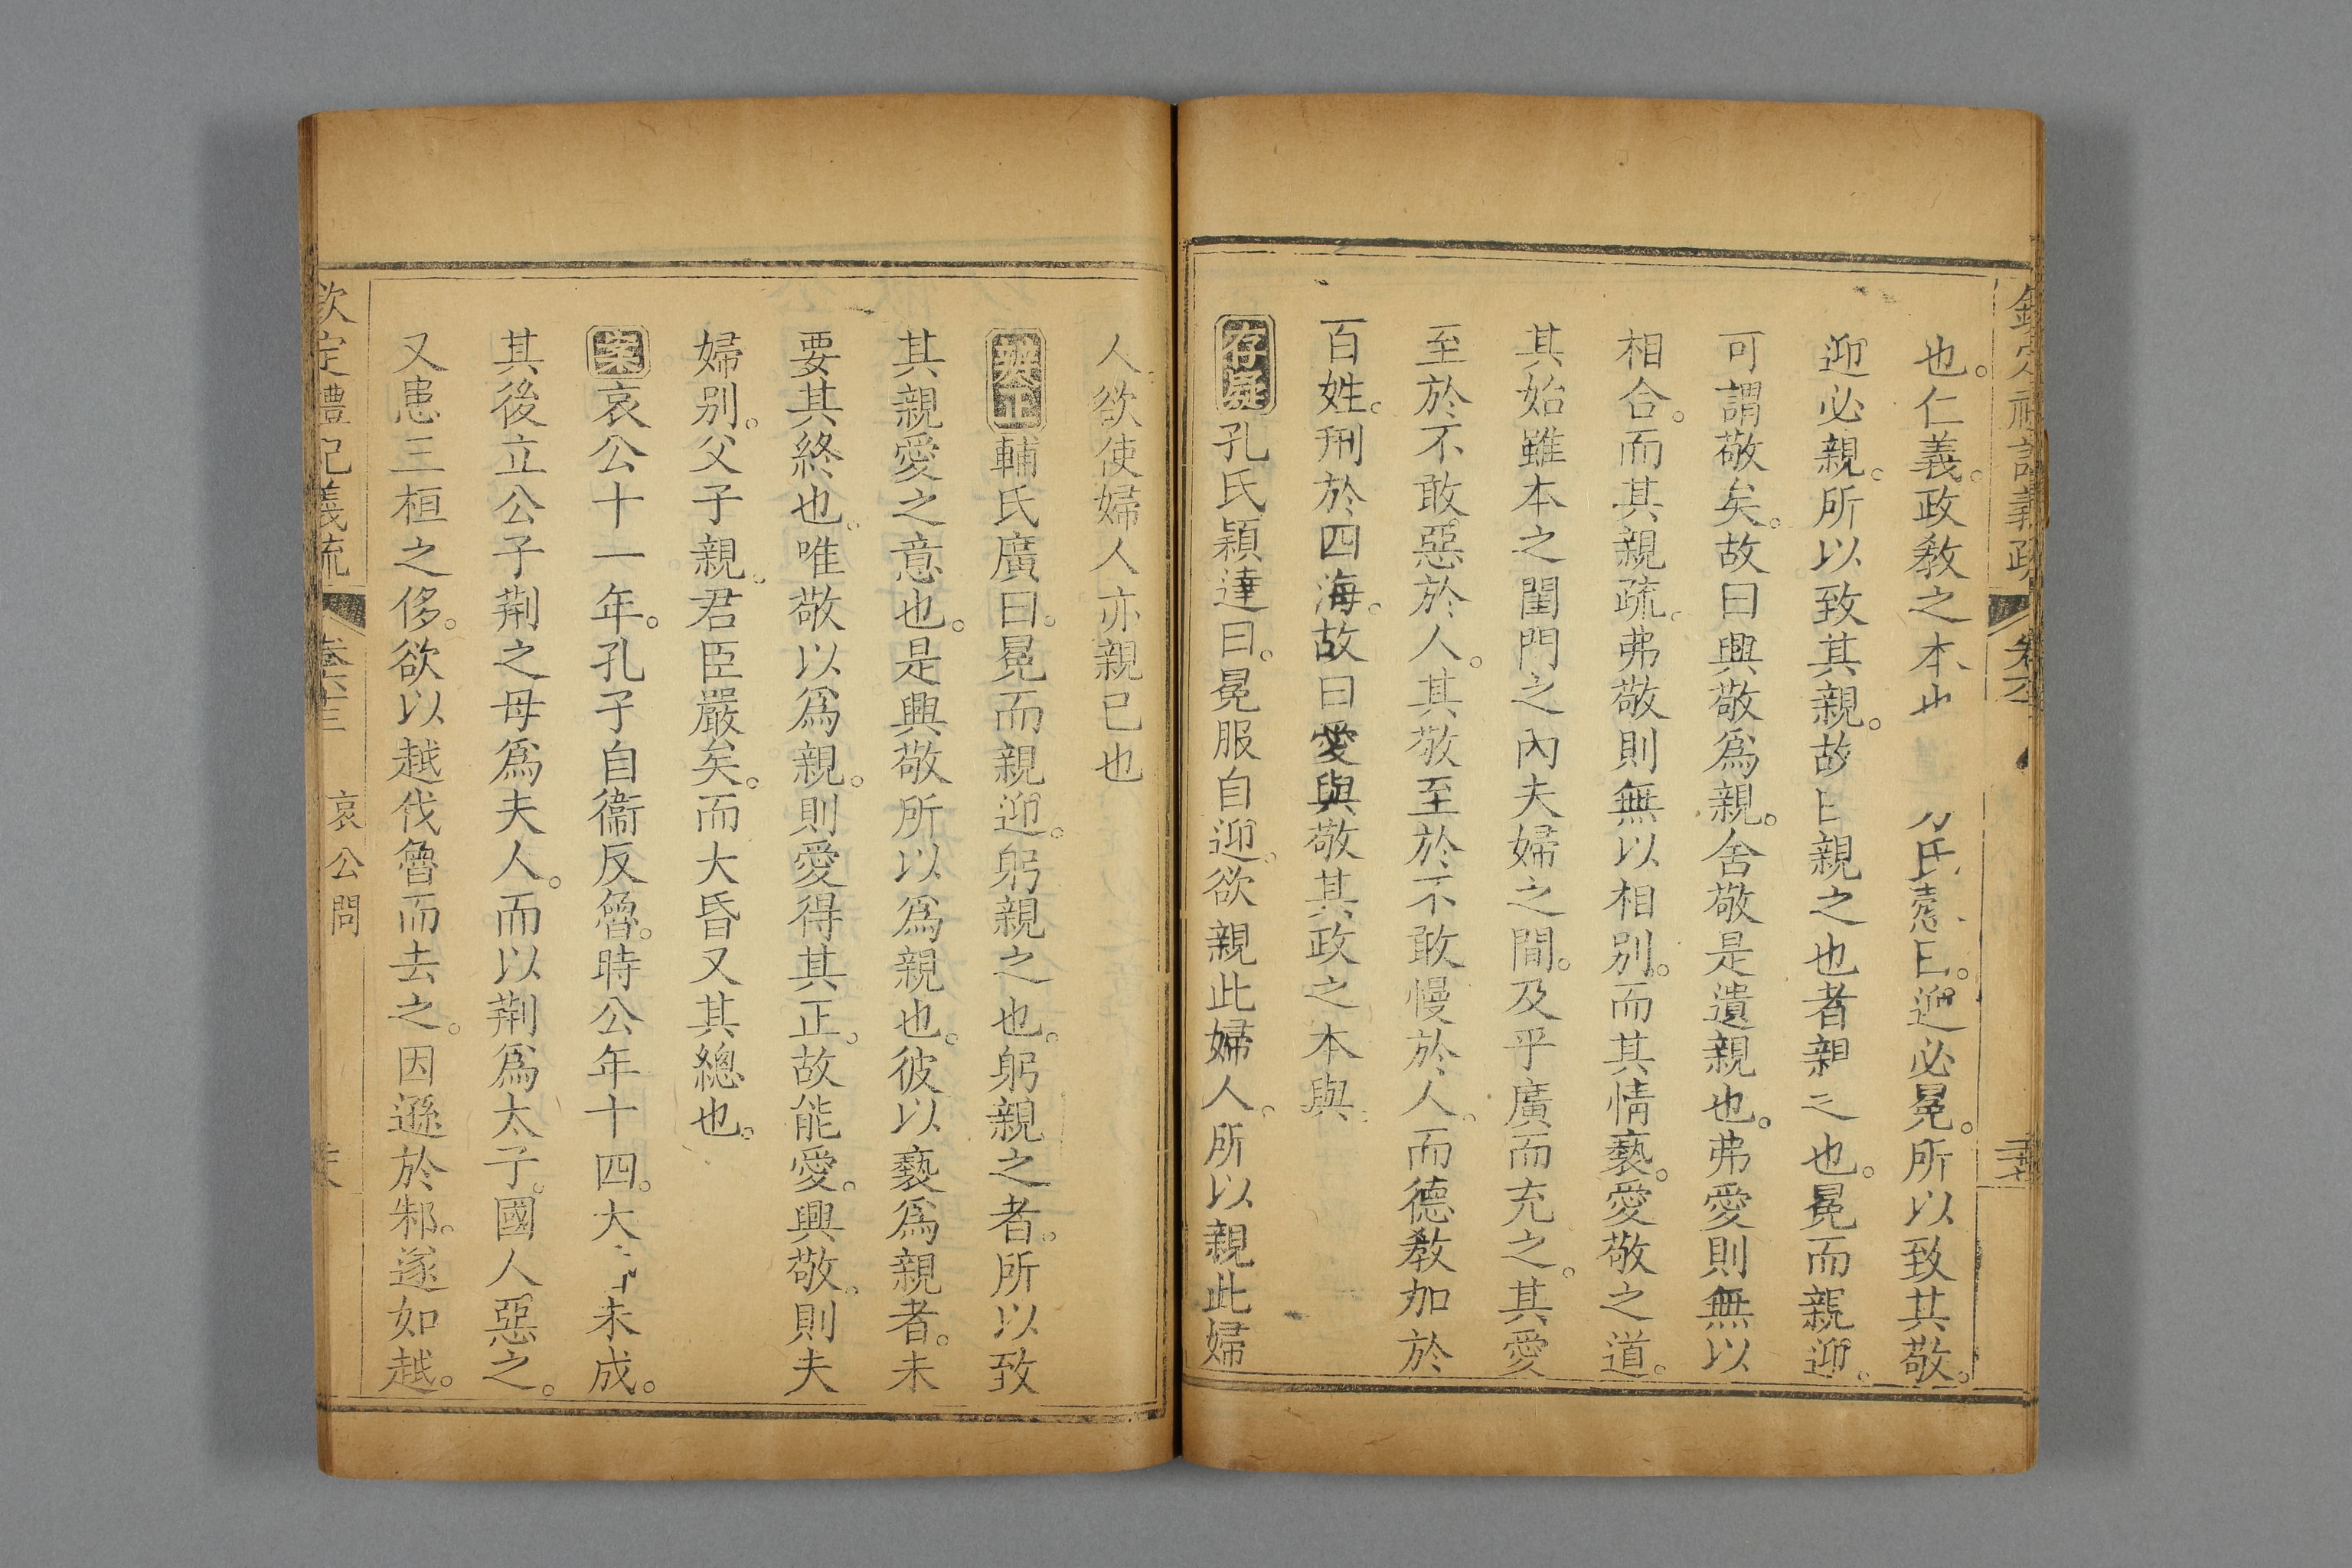 也。仁義。政敎之本也 方氏慤曰。迎必冕。所以致其敬。
迎必親。所以致其親。故曰親之也者親之也。冕而親迎。
可謂敬矣。故曰興敬爲親。舍敬是遺親也。弗愛則無以
相合。而其親疏。弗敬則無以相別。而其情褻。愛敬之道。
其始雖本之閨門之內夫婦之間。及乎廣而充之。其愛
至於不敢惡於人。其敬至於不敢慢於人。而德敎加於
百姓。刑於四海。故曰愛與敬其政之本與
存疑孔氏穎達曰。冕服自迎。欲親此婦人。所以親此婦
人欲使婦人亦親已也
辨正輔氏廣曰。冕而親迎。躬親之也。躬親之者。所以致
其親愛之意也。是興敬所以爲親也。彼以褻爲親者。未
要其終也。唯敬以爲親。則愛得其正。故能愛。興敬。則夫
婦別。父子親。君臣嚴矣。而大昏又其總也。
案哀公十一年。孔子自衞反魯。時公年十四。大 未成。
其後立公子荆之母爲夫人。而以荆爲太子。國人惡之。
又患三桓之侈。欲以越伐魯而去之。因遜於邾。遂如越。
欽定禮記義疏 卷六十三 哀公問